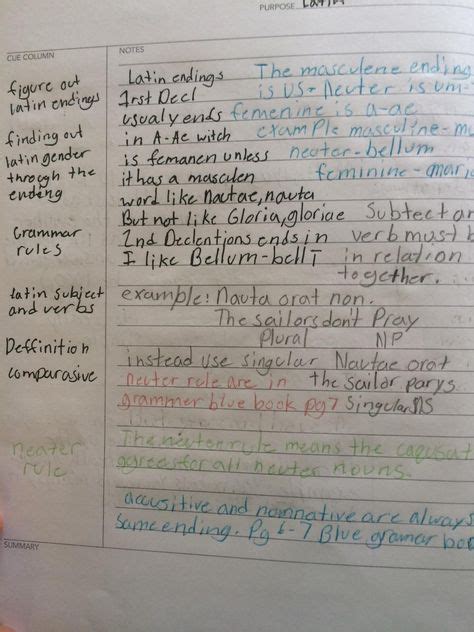 PURPOSE Latin
CUE COLUMN
NOTES
figure out
latin endings
finding out
latin gender
through the
ending
Grammar
rules
latin subject
and verbs
Deffinition
comparasive
neater
rule
Latin endings
1rst Decl
usualy ends
in A-Ae witch
is femanen unless
it has a masculen
word like Nautae, nauta
But not like Gloria, gloriae
2nd Declentions ends in
I like Bellum-bellī
The masculene ending
is us- Neuter is um-
femenine is a-ae
example masculine-m
neuter-bellum
feminine-maria
Subtect an
verb must b
in relation
together.
example: Nauta orat non.
The sailors don't Pray
Plural NP
instead use singular Nautae orat
the sailor parys
Singular NS
neuter rule are in
grammer blue book pg 7
The neuter rule means the
agrees for all neuter nouns.
accusitive and nomnative are always
same ending. Pg 6-7 Blue gramar boo
SUMMARY